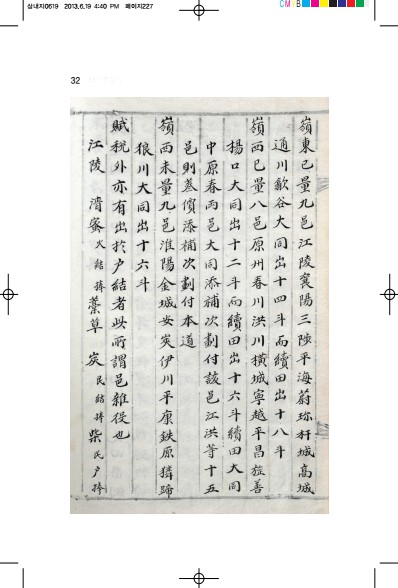 삼내지0619 2013.6.19 4:40 PM 페이지227
CM
32
嶺東已量九邑江陵襄陽三陟平海蔚珍杆城高城
通川歙谷大同出十四斗而續田出十八斗
嶺西已量八邑原州春川洪川橫城寧越平昌旌善
楊口大同出十二斗而續田出十六斗續田大同
中原春兩邑大同添補次劃付該邑江洪等十五
邑則蒸儐添補次劃付本道
嶺西未量九邑淮陽金城安峽伊川平康鉄原獜蹄
狼川大同出十六斗
賦稅外亦有出於戶結者此所謂邑雜役也
江陵 清蜜 火結捧 藁草 炭 民結捧 柴 民戶捧